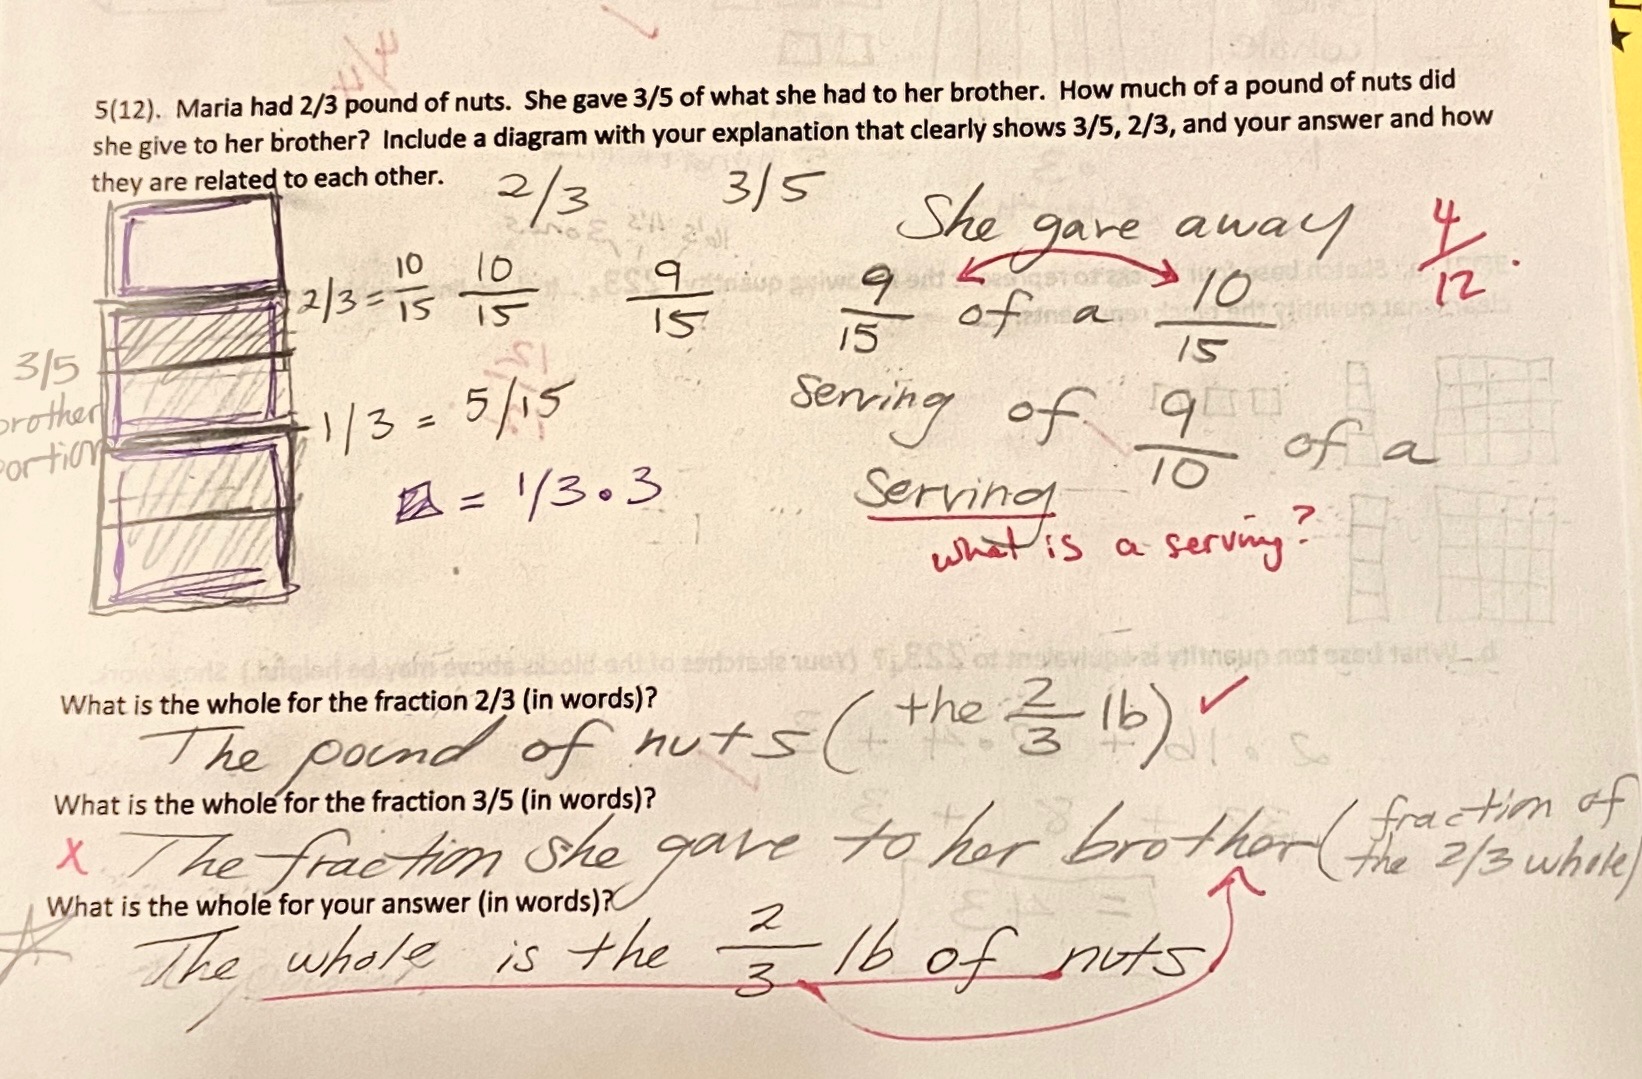 4/4
5(12). Maria had 2/3 pound of nuts. She gave 3/5 of what she had to her brother. How much of a pound of nuts did
she give to her brother? Include a diagram with your explanation that clearly shows 3/5, 2/3, and your answer and how
they are related to each other.
2/3 3/5
She gave away
4/12
2/3 = 10/15 10/15 9/15
9/15 of a 10/15
3/5
brother
portion
1/3 = 5/15
Serving of 9/10 of a
= 1/3 • 3
Serving
what is a serving?
What is the whole for the fraction 2/3 (in words)?
The pound of nuts (the 2/3 lb) ✓
What is the whole for the fraction 3/5 (in words)?
X The fraction she gave to her brother (fraction of
the 2/3 whole)
What is the whole for your answer (in words)?
The whole is the 2/3 lb of nuts